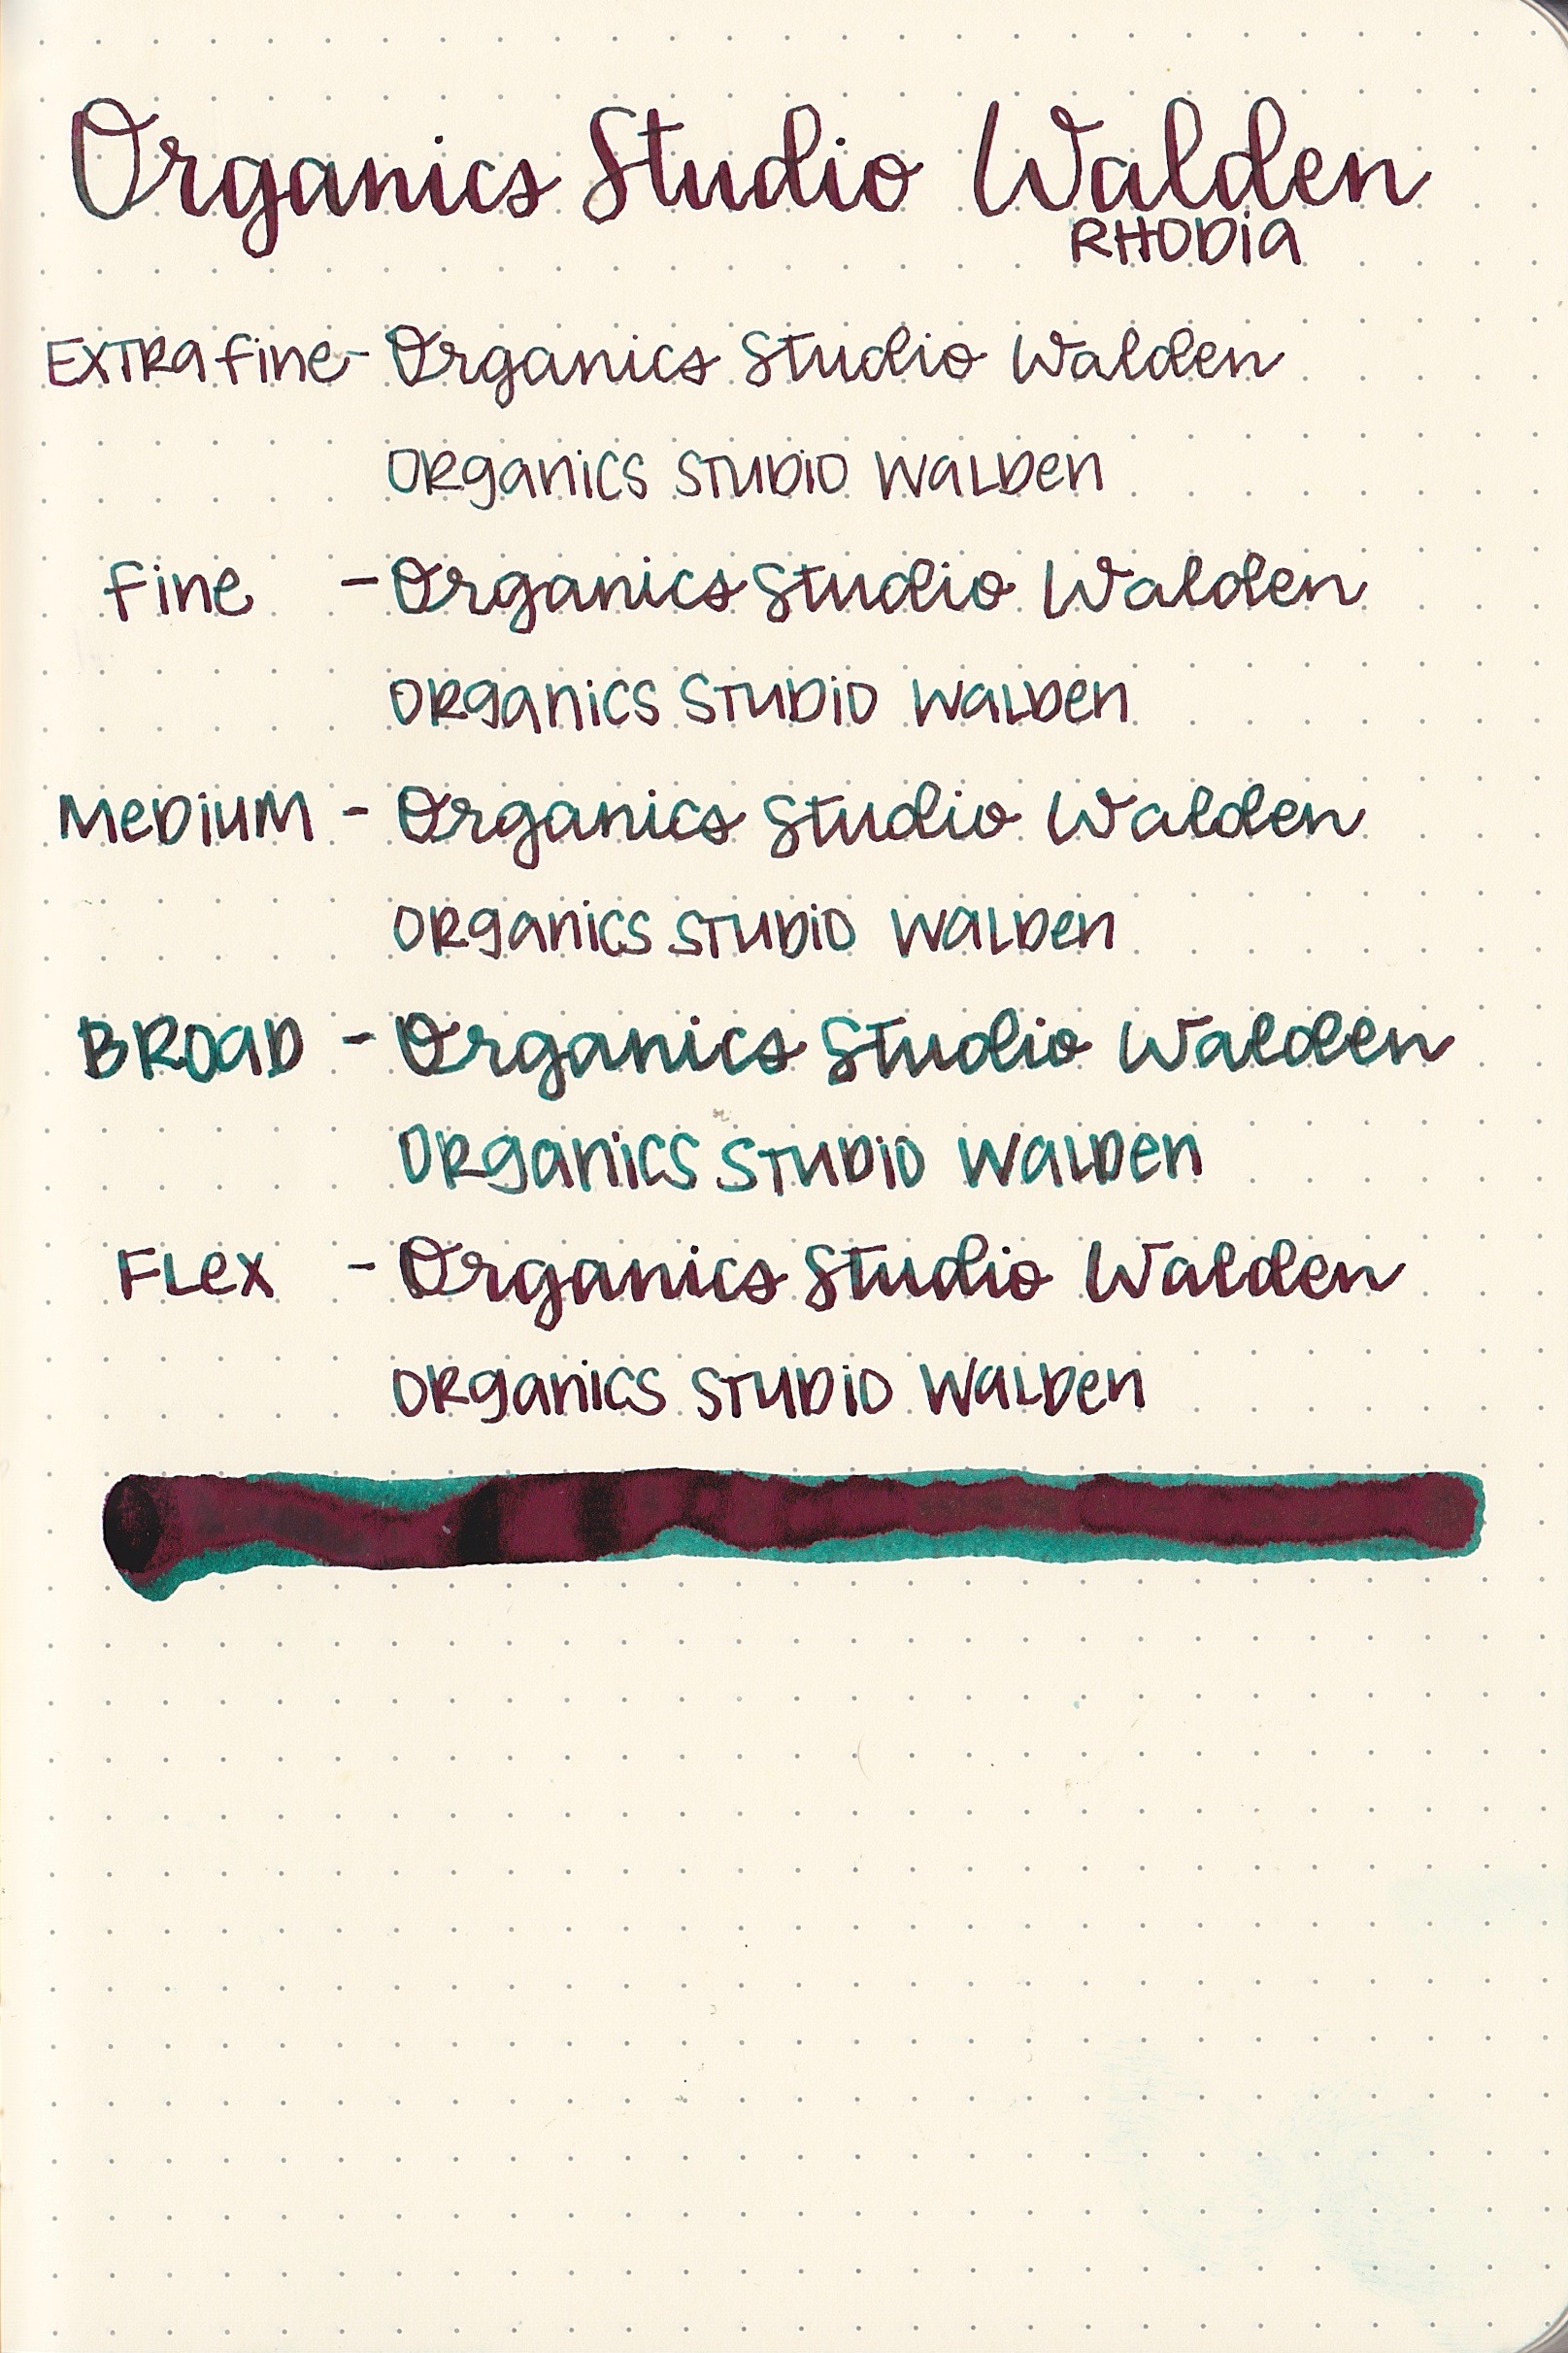 Organics Studio Walden
RHODIA
EXTRA Fine - Organics Studio Walden
ORganics STUDiO WaLDen
Fine - Organics Studio Walden
ORganics STUDiO WaLDen
MeDiUM - Organics Studio Walden
ORganics STUDiO WaLDen
BROaD - Organics Studio Walden
ORganics STUDiO WaLDen
FLex - Organics Studio Walden
ORganics STUDiO WaLDen